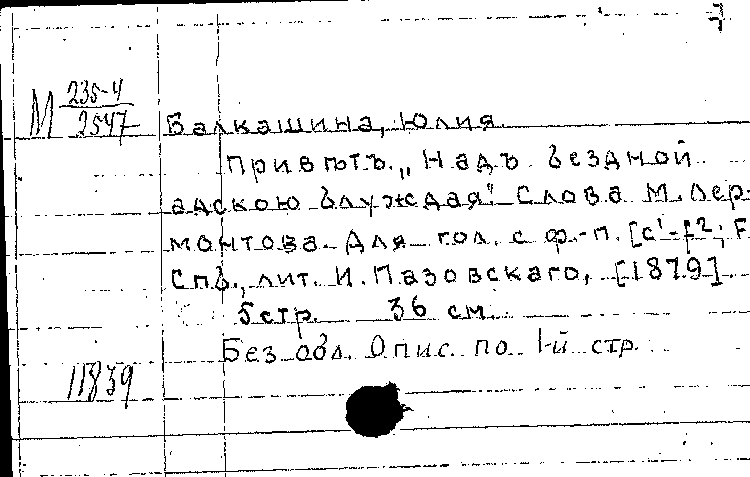 М 235-4
2547
Балкашина, Юлия.
Привѣтъ. „Надъ бездной
адскою блуждая". Слова М. Лер-
монтова. Для гол. с ф.-п. [c¹-f²; F
Спб., лит. И. Пазовскаго, [1879]
5 стр. 36 см.
Без обл. Опис. по 1-й стр.
11839